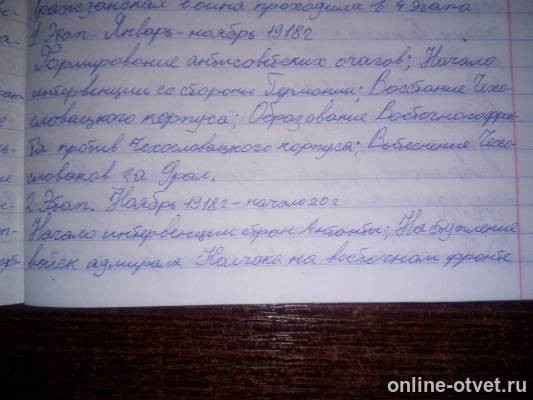 Гражданская война проходила в 4 этапа
1 Этап Январь - ноябрь 1918г
Формирование антисоветских очагов; Начало
интервенции со стороны Германии; Восстание Чехо-
словацкого корпуса; Образование Восточного фрон-
та против Чехословацкого корпуса; Вытеснение Чехо-
словаков за Урал.
2. Этап. Ноябрь 1918г - начало 20г
Начало интервенции стран Антанты; Наступление
войск адмирала Колчака на восточном фронте
online-otvet.ru